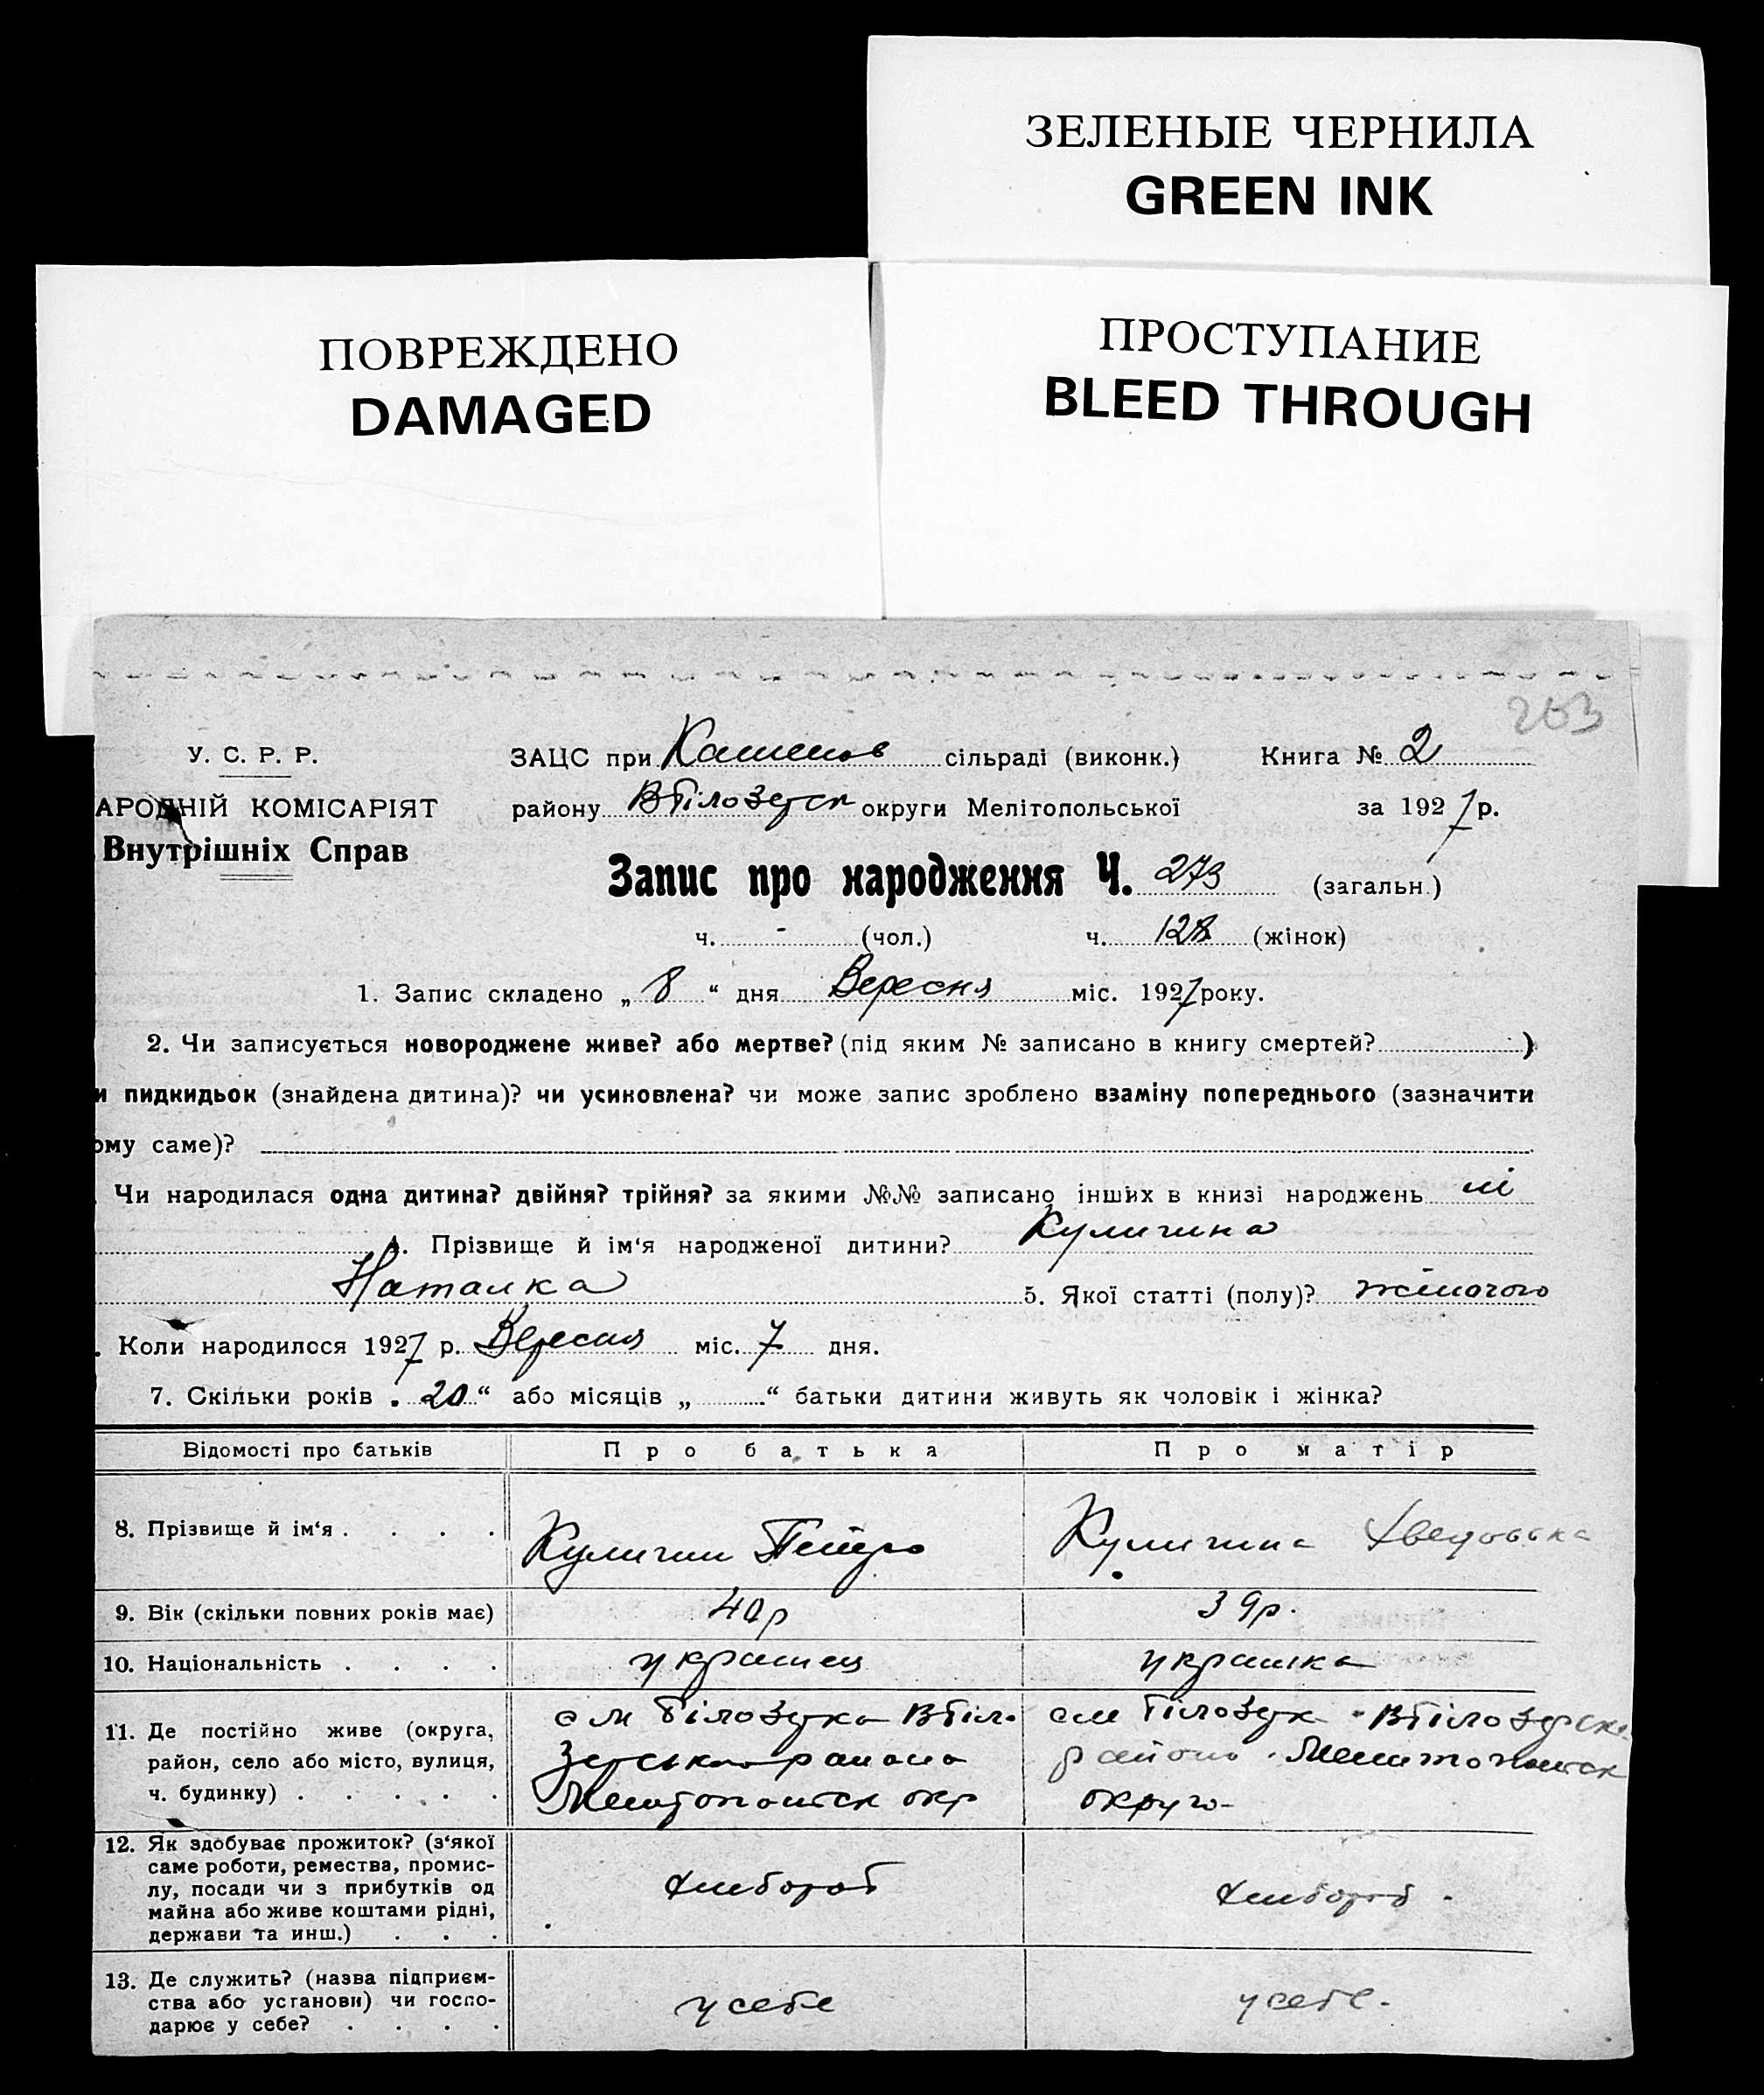 ЗЕЛЕНЫЕ ЧЕРНИЛА
GREEN INK
ПОВРЕЖДЕНО
DAMAGED
ПРОСТУПАНИЕ
BLEED THROUGH
203
У. С. Р. Р. ЗАЦС при сільраді (виконк.) Книга № 2
АРОДНІЙ КОМІСАРІЯТ району ВБілозерск округи Мелітопольської за 1927 р.
Внутрішніх Справ
Запис про народження Ч. 273 (загальн.)
ч. - (чол.) ч. 128 (жінок)
1. Запис складено „ 8 “ дня Вересня міс. 1927 року.
2. Чи записується новороджене живе? або мертве? (під яким № записано в книгу смертей? )
и пидкидьок (знайдена дитина)? чи усиновлена? чи може запис зроблено взаміну попереднього (зазначити
ому саме)?
. Чи народилася одна дитина? двійня? трійня? за якими №№ записано інших в книзі народжень ні
4. Прізвище й ім‘я народженої дитини? Куличина
Наталка 5. Якої статті (полу)? жіночого
. Коли народилося 1927 р. Вересня міс. 7 дня.
7. Скільки років „ 20 “ або місяців „ “ батьки дитини живуть як чоловік і жінка?
Відомості про батьків Про батька Про матір
8. Прізвище й ім‘я . . . . Куличин Петро Куличина
9. Вік (скільки повних років має) 40 р 39 р.
10. Національність . . . . украинец украинка
11. Де постійно живе (округа, см Білозерка ВБіло см Білозерк ВБілозерск
район, село або місто, вулиця, зерського района района Мелитопольск
ч. будинку) . . . . . Мелитопольск окр округо
12. Як здобуває прожиток? (з‘якої
саме роботи, ремества, промис-
лу, посади чи з прибутків од хлібороб хлібороб
майна або живе коштами рідні,
держави та инш.) . . .
13. Де служить? (назва підприєм-
ства або установи) чи госпо- у себе у себе.
дарює у себе? . . . .